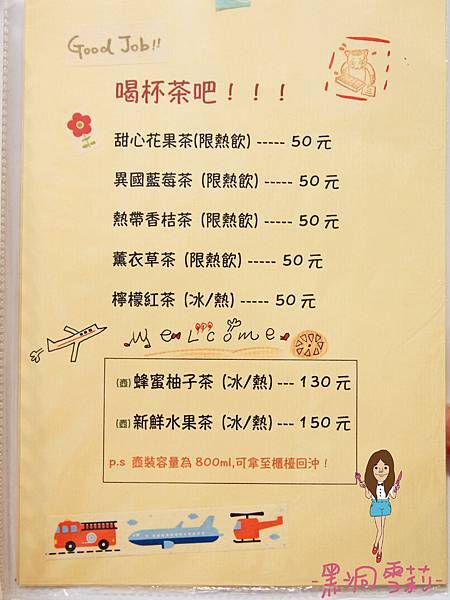 Good Job!!
喝杯茶吧！！！
甜心花果茶(限熱飲) ----- 50 元
異國藍莓茶 (限熱飲) ----- 50 元
熱帶香桔茶 (限熱飲) ----- 50 元
薰衣草茶 (限熱飲) ----- 50 元
檸檬紅茶 (冰/熱) ----- 50 元
Welcome
(壺)蜂蜜柚子茶 (冰/熱) --- 130 元
(壺)新鮮水果茶 (冰/熱) --- 150 元
p.s 壺裝容量為 800ml,可拿至櫃檯回沖！
-黑洞雪莉-